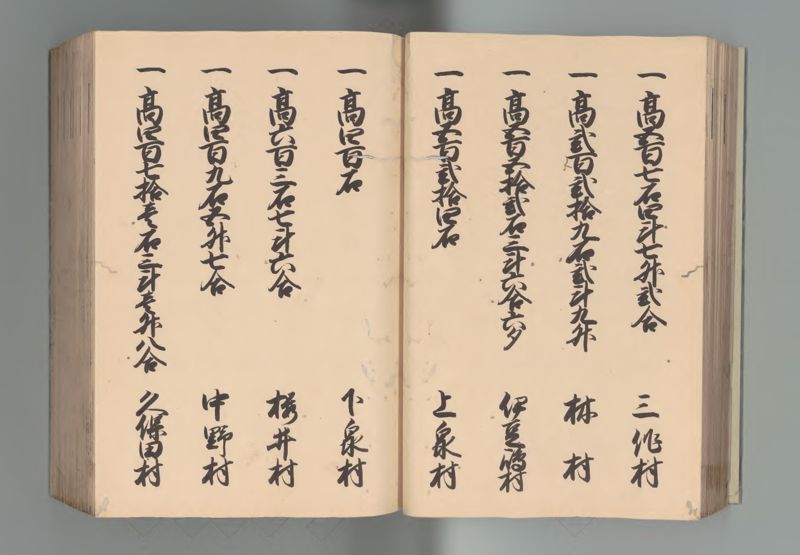 一 高五百七石四斗七升弐合 三作村
一 高弐百弐拾九石弐斗九升 林村
一 高五百五拾弐石三斗六合六夕 伊豆嶋村
一 高五百弐拾四石 上泉村
一 高四百石 下泉村
一 高六百三石七斗六合 桜井村
一 高四百九石五升七合 中野村
一 高四百七拾壱石三斗壱升八合 久保田村